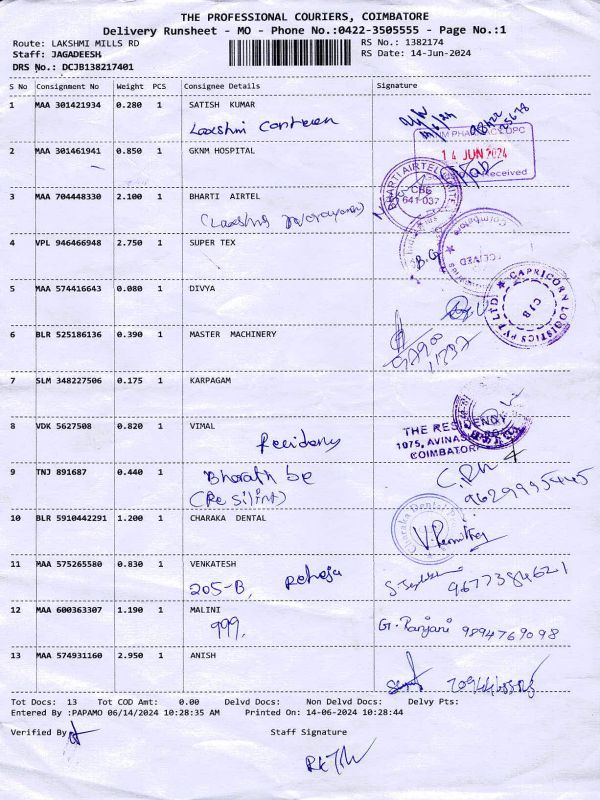 THE PROFESSIONAL COURIERS, COIMBATORE
Delivery Runsheet - MO - Phone No.:0422-3505555 - Page No.:1
Route: LAKSHMI MILLS RD RS No.: 1382174
Staff: JAGADEESH RS Date: 14-Jun-2024
DRS No.: DCJB138217401
S No Consignment No Weight PCS Consignee Details Signature
1 MAA 301421934 0.280 1 SATISH KUMAR
2 MAA 301461941 0.850 1 GKNM HOSPITAL
14 JUN 2024
Received
3 MAA 704448330 2.100 1 BHARTI AIRTEL
BHARTI AIRTEL LIMITED
CBE
641 037
4 VPL 946466948 2.750 1 SUPER TEX
B.G
5 MAA 574416643 0.080 1 DIVYA
CAPRICORN LOGISTICS PVT LTD
CJB
6 BLR 525186136 0.390 1 MASTER MACHINERY
7 SLM 348227506 0.175 1 KARPAGAM
8 VDK 5627508 0.820 1 VIMAL
Residency
THE RESIDENCY
1075, AVINAS
COIMBATOR
9 TNJ 891687 0.440 1 Bharath be
10 BLR 5910442291 1.200 1 CHARAKA DENTAL
Charaka Dental
11 MAA 575265580 0.830 1 VENKATESH
205-B, Raheja
9677384621
12 MAA 600363307 1.190 1 MALINI
999, G. Ranjani 9894769098
13 MAA 574931160 2.950 1 ANISH
Tot Docs: 13 Tot COD Amt: 0.00 Delvd Docs: Non Delvd Docs: Delvy Pts:
Entered By :PAPAMO 06/14/2024 10:28:35 AM Printed On: 14-06-2024 10:28:44
Verified By Staff Signature